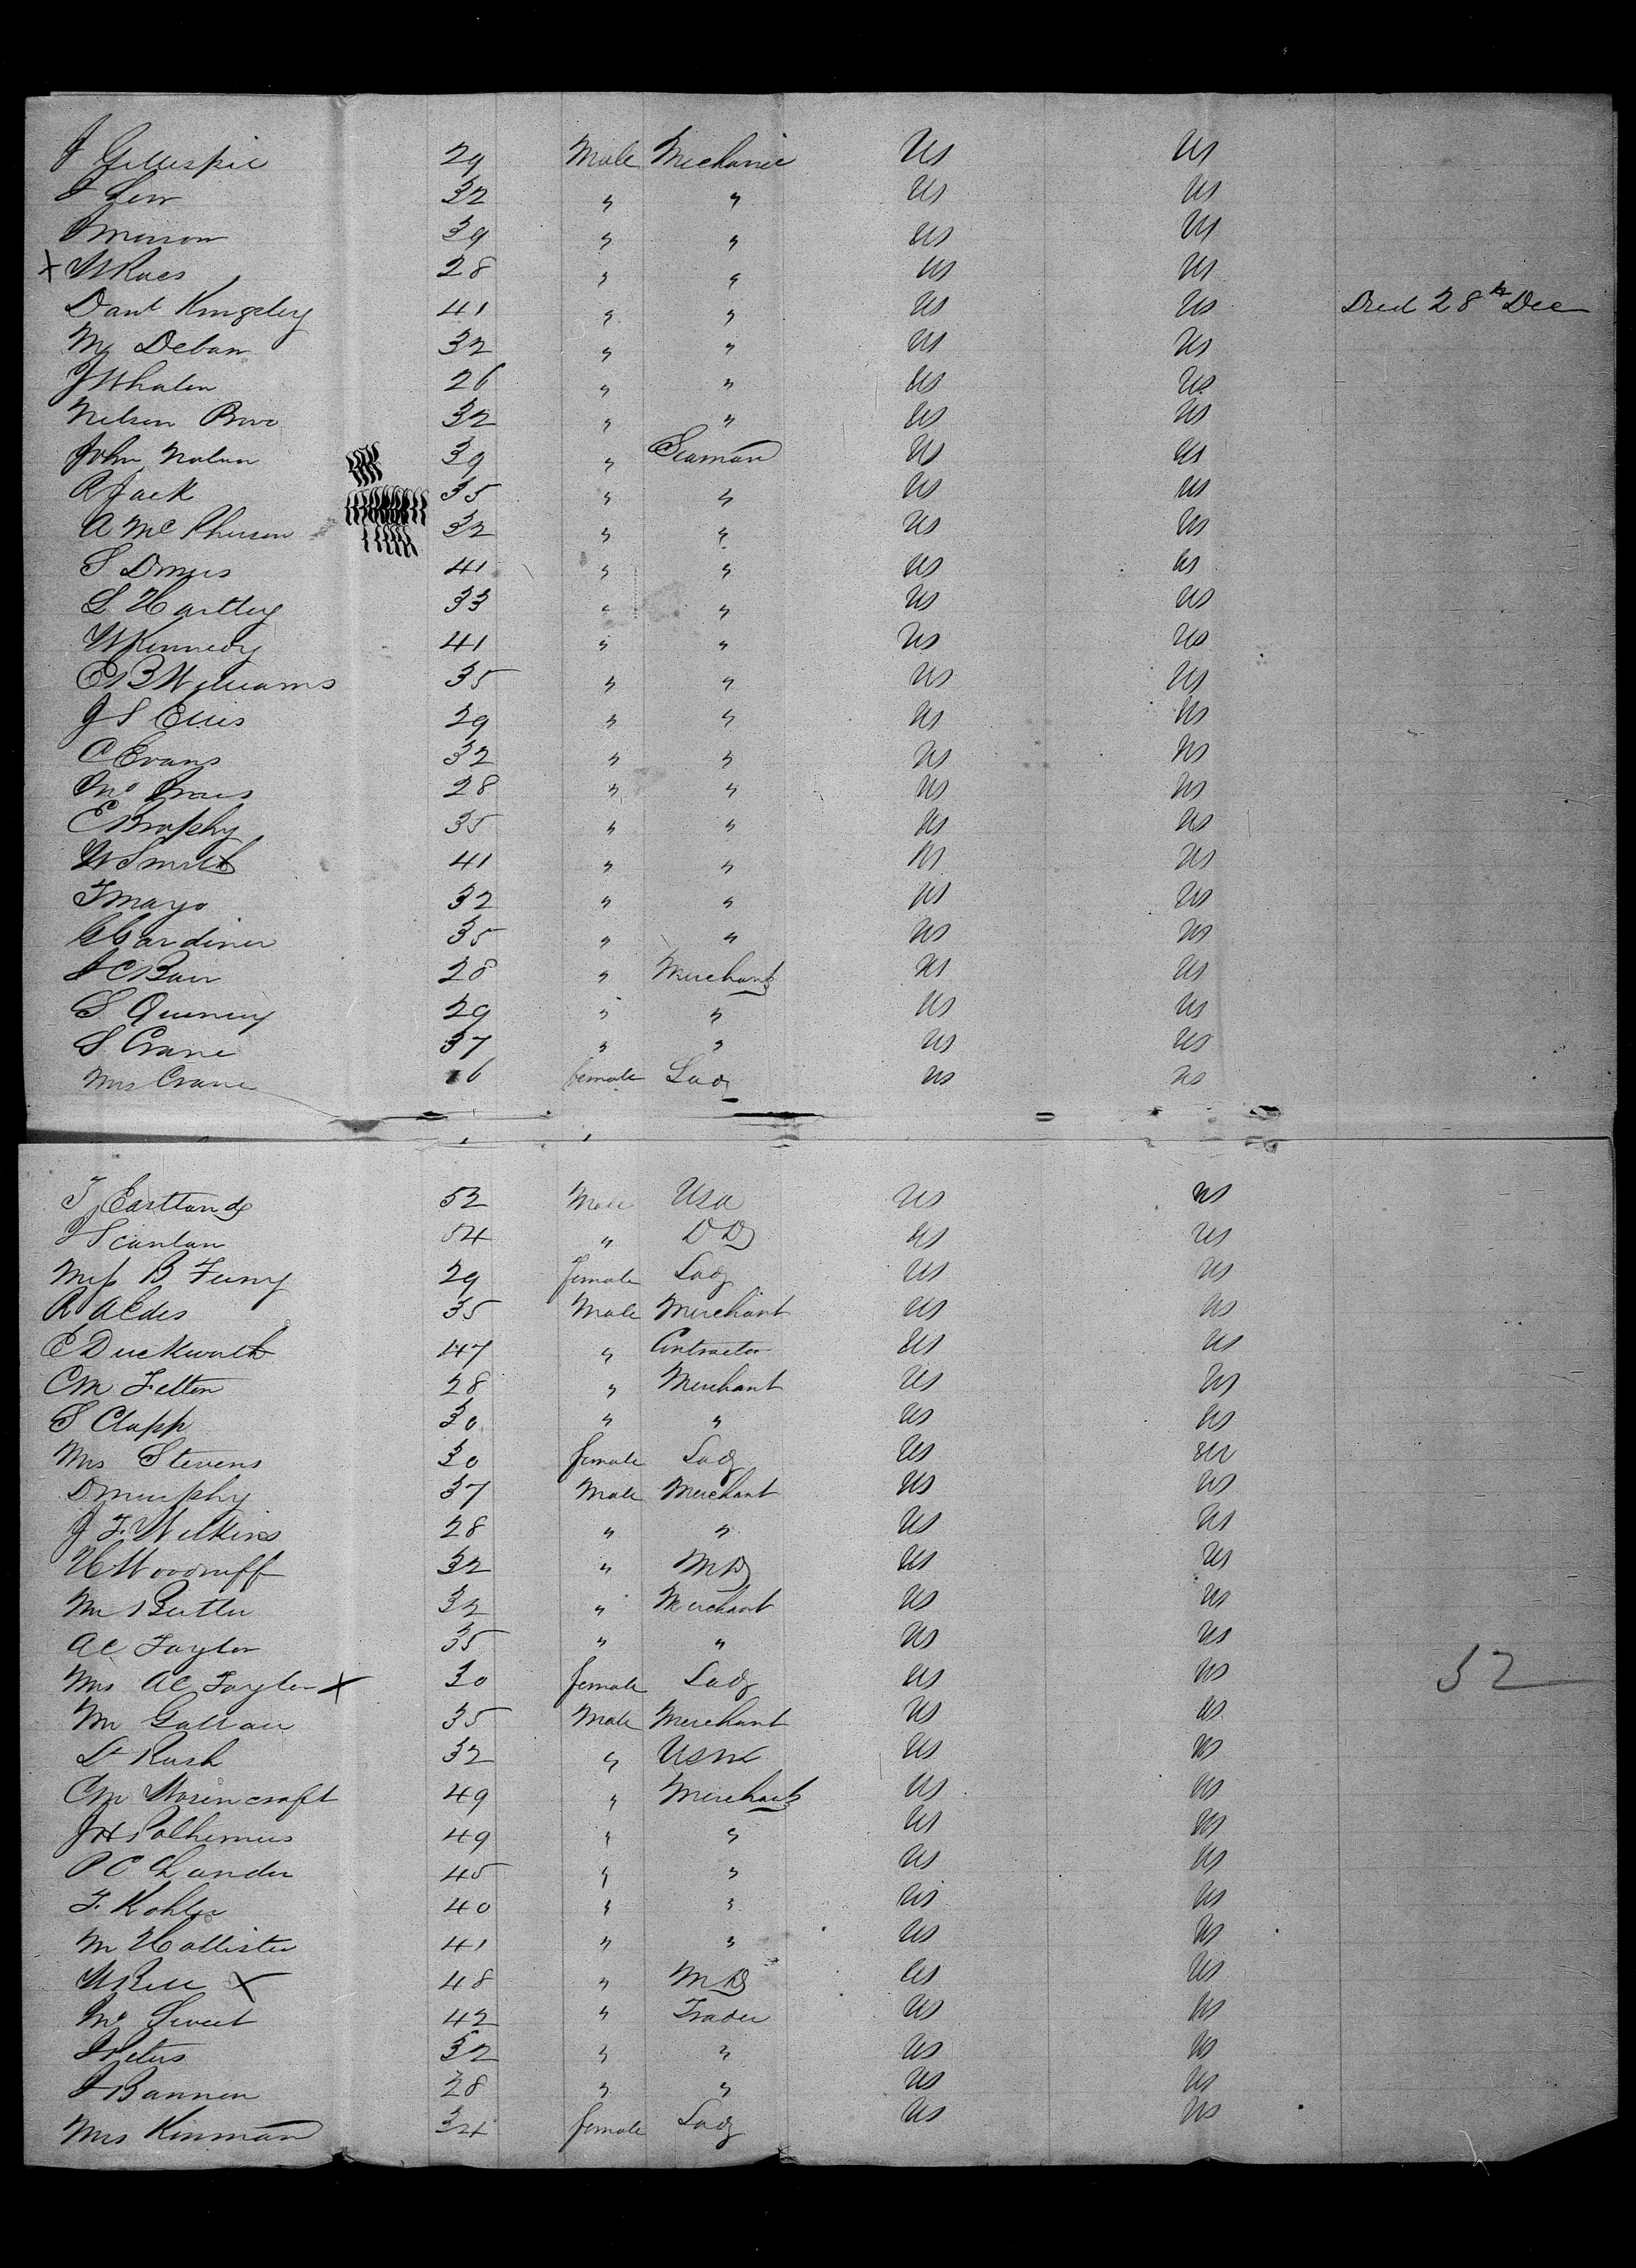 J Gillespie 29 Male Mechanic US US
J Low 32 " " US US
J Mason 39 " " US US
X W Rves 28 " " US US
Danl Kingsley 41 " " US US Died 28th Dec
M Deban 32 " " US US
J Whalen 26 " " US US
Nelson 32 " " US US
John Nolan 39 " Seaman US US
R Jack 35 " " US US
A McPherson 32 " " US US
S 41 " " US US
L Hartley 33 " " US US
W Kennedy 41 " " US US
E B Williams 35 " " US US
J S Ellis 29 " " US US
C Evans 32 " " US US
28 " " US US
E Brophy 35 " " US US
W Smith 41 " " US US
T Mayo 32 " " US US
G Gardiner 35 " " US US
28 " Merchant US US
S Quincy 29 " " US US
S Crane 37 " " US US
Mrs Crane female Lady US US
T J Eastland 52 Male USA US US
J Scanlan 54 " DD US US
Miss B 29 female Lady US US
R Aldes 35 Male Merchant US US
E Duckworth 47 " Contractor US US
C M Felton 28 " Merchant US US
S Clapp 30 " " US US
Mrs Stevens 30 female Lady US US
D Murphy 37 Male Merchant US US
J F. Wilkins 28 " " US US
H Woodruff 32 " MD US US
M Butler 32 " Merchant US US
A C Taylor 35 " " US US
Mrs A C Taylor X 30 female Lady US US 52
M 35 Male Merchant US US
Lt Rush 32 " USN US US
C M 49 " Merchant US US
J H Polhemus 49 " " US US
P C Lander 45 " " US US
F. Kohler 40 " " US US
M Hollister 41 " " US US
W Bell X 48 " MD US US
Sweet 42 " Trader US US
J Peters 32 " " US US
J Bannon 28 " " US US
Mrs Kinman 34 female Lady US US